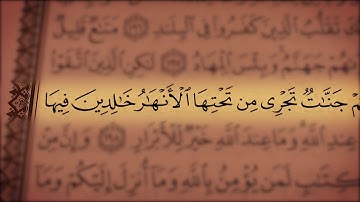 تَقَلُّبُ الَّذِينَ كَفَرُوا فِي الْبِلَٰدِ ۝ مَتَٰعٌ قَلِيلٌ
جَهَنَّمُ وَبِئْسَ الْمِهَادُ ۝ لَٰكِنِ الَّذِينَ اتَّقَوْا
جَنَّٰتٌ تَجْرِى مِن تَحْتِهَا ٱلْأَنْهَٰرُ خَٰلِدِينَ فِيهَا
عِندِ اللَّهِ وَمَا عِندَ اللَّهِ خَيْرٌ لِّلْأَبْرَارِ ۝ وَإِنَّ مِنْ
لَمَن يُؤْمِنُ بِاللَّهِ وَمَا أُنزِلَ إِلَيْكُمْ وَمَا